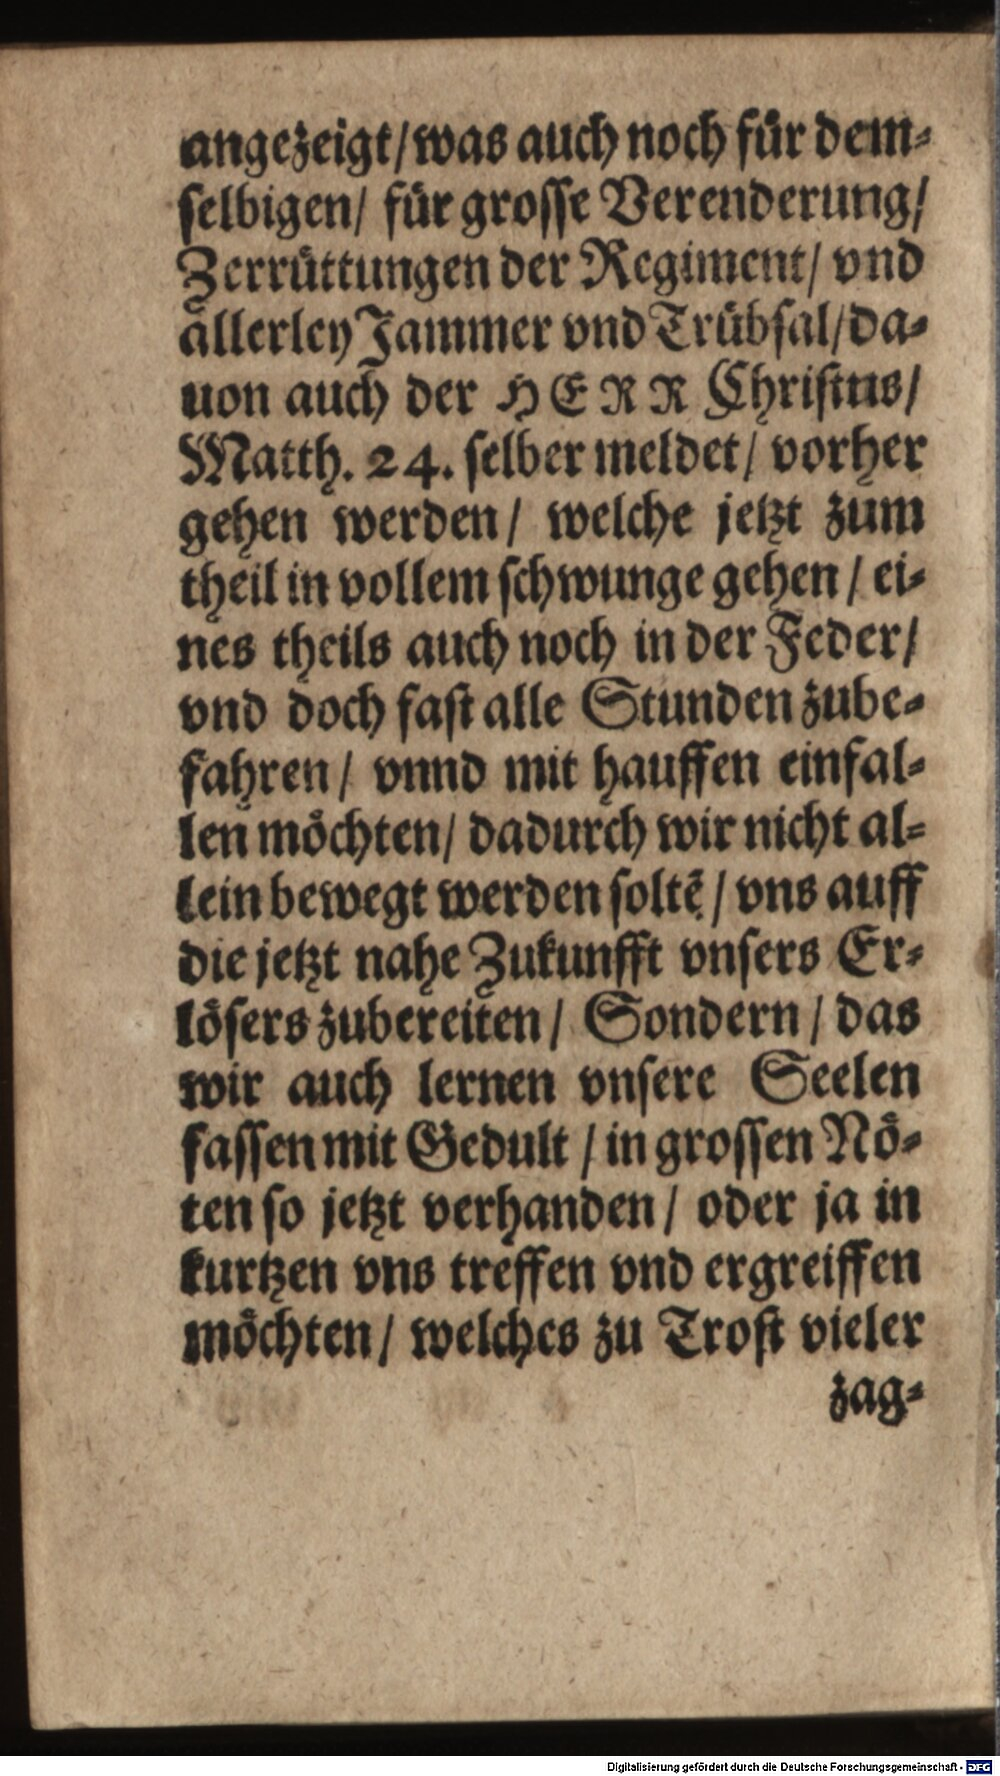 angezeigt/ was auch noch für dem-
selbigen/ für grosse Verenderung/
Zerrüttungen der Regiment/ vnd
allerley Jammer vnd Trübsal/ da-
uon auch der HERR Christus/
Matth. 24. selber meldet/ vorher
gehen werden/ welche jetzt zum
theil in vollem schwunge gehen/ ei-
nes theils auch noch in der Feder/
vnd doch fast alle Stunden zube-
fahren/ vnnd mit hauffen einfal-
len möchten/ dadurch wir nicht al-
lein bewegt werden soltẽ/ vns auff
die jetzt nahe Zukunfft vnsers Er-
lösers zubereiten/ Sondern/ das
wir auch lernen vnsere Seelen
fassen mit Gedult/ in grossen Nö-
ten so jetzt verhanden/ oder ja in
kurtzen vns treffen vnd ergreiffen
möchten/ welches zu Trost vieler
zag-
Digitalisierung gefördert durch die Deutsche Forschungsgemeinschaft - DFG